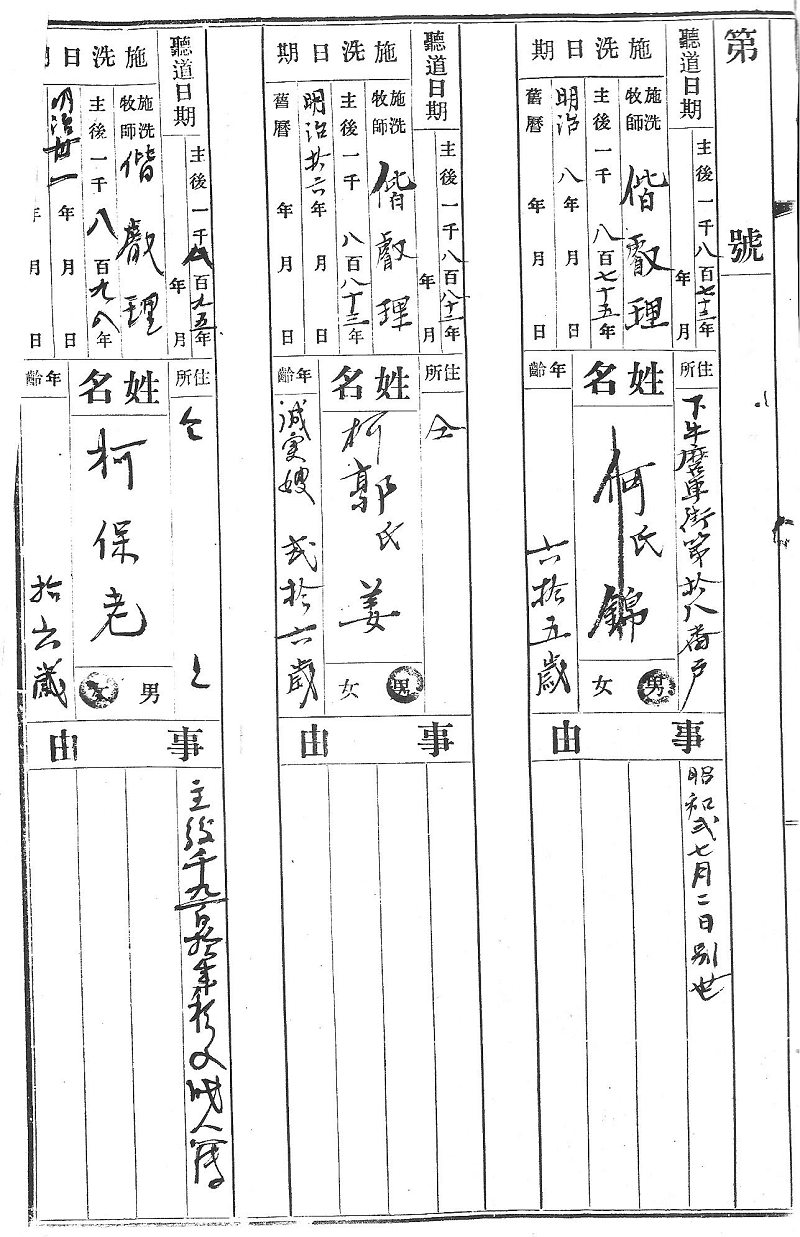 第 號
聽道日期
主後一千八百七十三年
年 月
施洗日期
施洗牧師 偕叡理
主後一千八百七十五年
明治八年 月 日
舊曆 年 月 日
住所
下牛磨車街第拾八番戶
姓名
何氏錦
男 女
年齡
六拾五歲
事由
昭和弍七月二日別世
聽道日期
主後一千八百八十三年
年 月
施洗日期
施洗牧師 偕叡理
主後一千八百八十三年
明治廿六年 月 日
舊曆 年 月 日
住所
仝
姓名
柯郭氏姜
男 女
年齡
誠實嫂 弍拾六歲
事由
聽道日期
主後一千八百九五年
年 月
施洗日期
施洗牧師 偕叡理
主後一千八百九八年
明治卅一年 月 日
年 月 日
住所
仝
姓名
柯保老
男 女
年齡
拾六歲
事由
主後千九百
成人